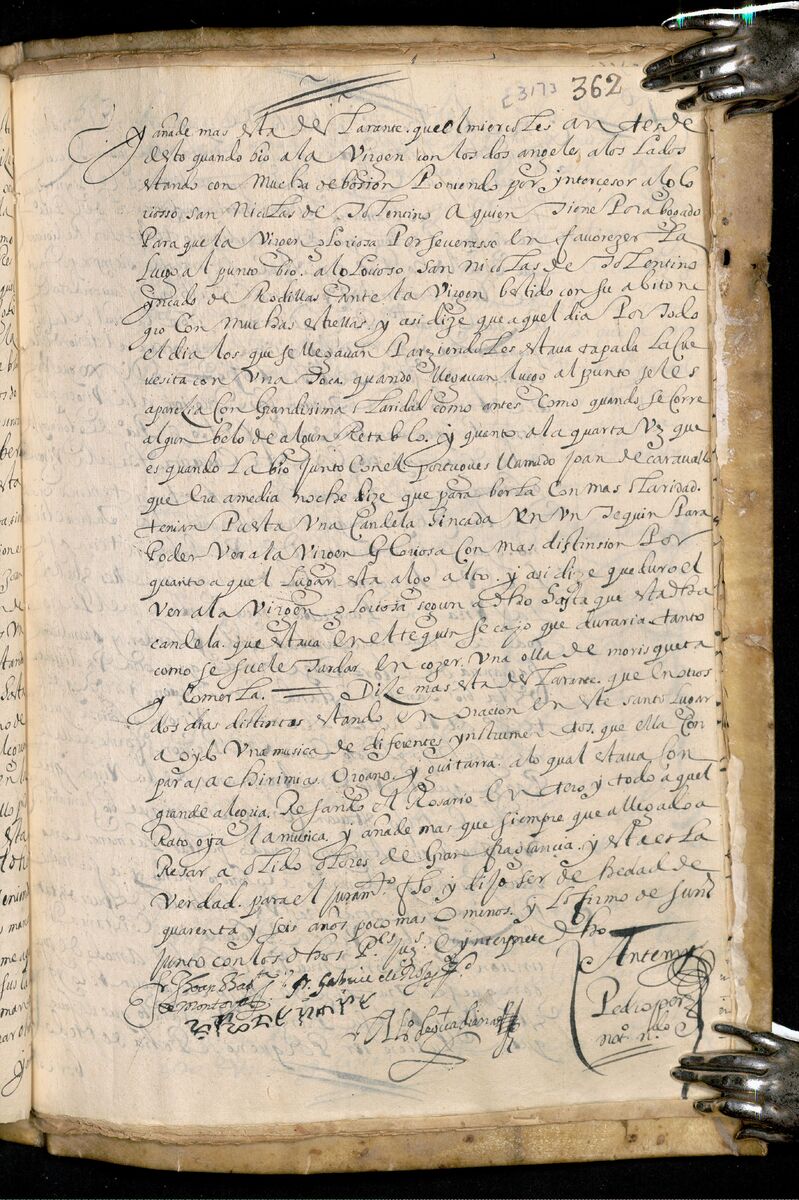 E3173 362
y añade mas esta declarante. que el miercoles antes de
desto quando bio a la Virgen con los dos angeles a los lados
estando con mucha debosion Poniendo por yntercesor al glo
riosso, san Nicolas de Tolentino a quien tiene Por abogado
Para que la Virgen gloriosa Perseverasse en favorezer La
Luego al punto bio. al glorioso san Nicolas de Tolentino
yncado de Rodillas ante la Virgen bestido con su abito ne
gro con muchas estrellas, y asi dize que aquel dia Por todo
el dia los que se llegavan Pareziendoles estava tapada La cue
vesita con Una toca. quando llegavan luego al punto se les
aparezia con Grandisima claridad como antes como quando se corre
algun belo de algun Retablo. y quanto a la quarta Vez que
es quando La bio junto con el portugues llamado Joan de caravallo
que era a media noche dize que para berla con mas claridad.
tenian Puesta Una Candela hincada en Un tequin Para
Poder Ver a la Virgen Gloriosa con mas distinsion Por
quanto aquel Lugar esta algo alto. y asi dize que duro el
Ver a la Virgen gloriosa segun a dho hasta que esta dha
candela. que estava en el tequin se cayo que duraria tanto
como se suele tardar en cozer. Una olla de morisqueta
y comerla. Dize mas esta declarante. que en otros
dos dias distintos estando en oracion en este santo Lugar
a oydo Una musica de diferentes ynstrumentos. que ella con
para, a chirimias. Organo. y guitarra. a lo qual estava con
grande alegria. Resando el Rosario entero, y todo aquel
Rato oya la musica. y añade mas que siempre que a llegado a
Resar a olido olores de Gran fragancia. y esta es La
Verdad. para el juramto fho y dijo ser de hedad de
quarenta y seis años poco mas o menos. y Lo firmo de
junto con los dhos Ps Juzs e ynterprete dho
fr Joan Bapta fr. Gabriel de
de montoya Antemy
Pedro
Alo not. ndo